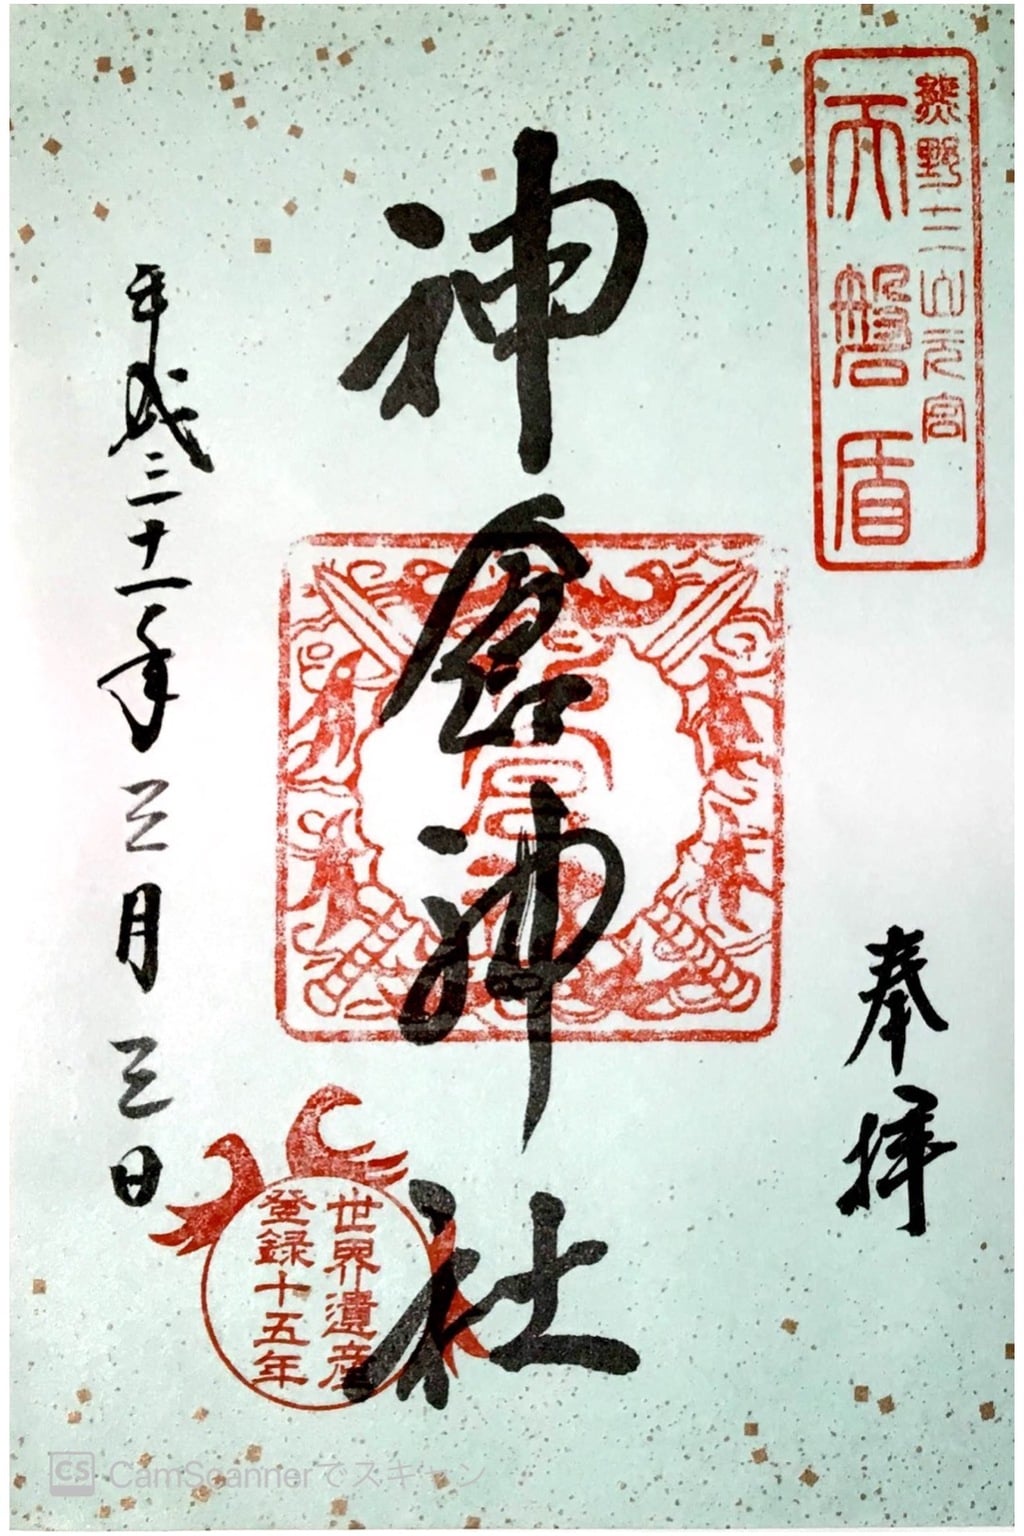 熊野三山元宮
天磐盾
奉拝
神倉神社
平成三十一年三月三日
世界遺産
登録十五年
CS CamScannerでスキャン